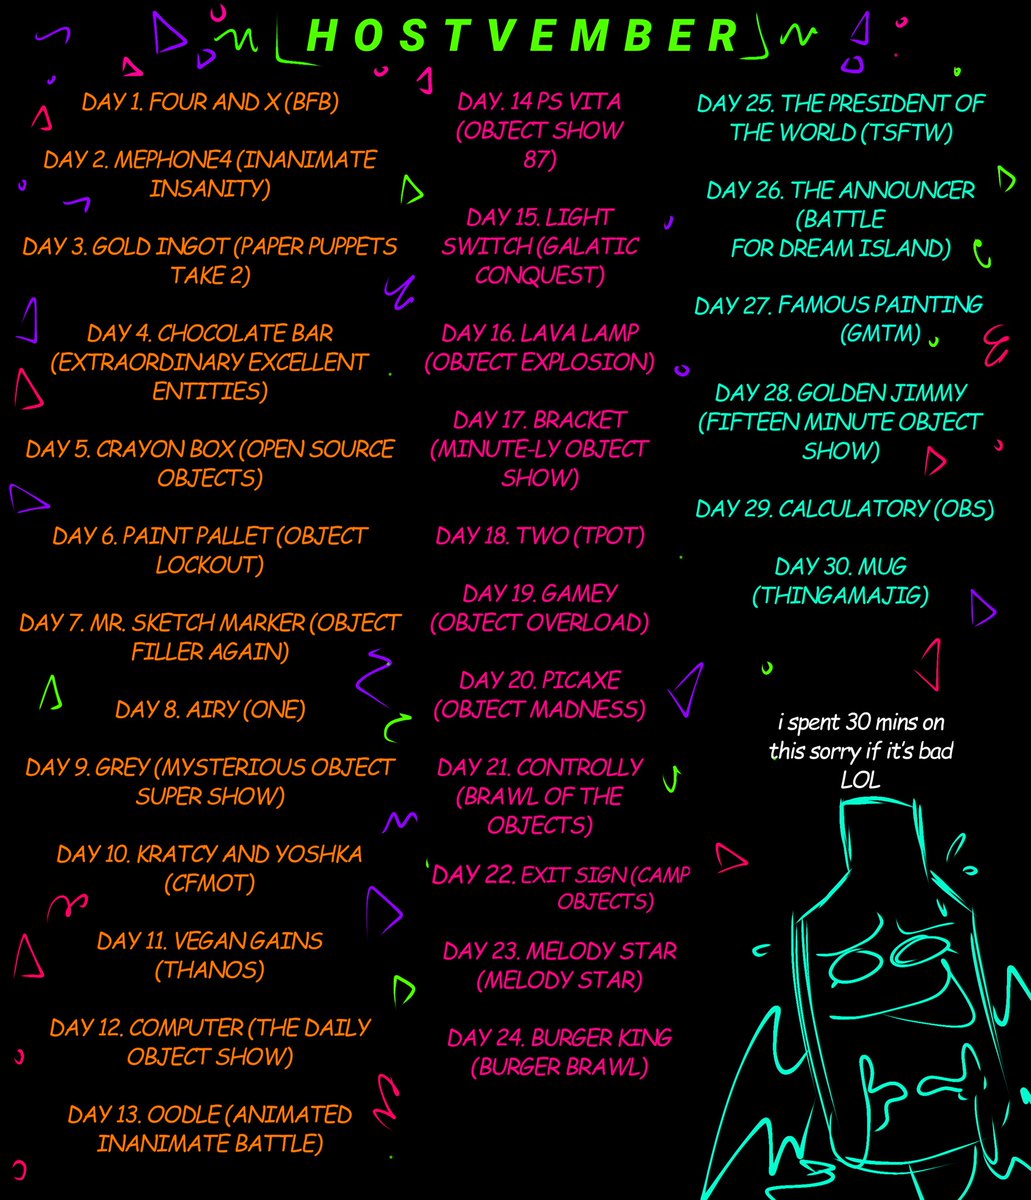 HOSTVEMBER
DAY 1. FOUR AND X (BFB)
DAY 2. MEPHONE4 (INANIMATE
INSANITY)
DAY 3. GOLD INGOT (PAPER PUPPETS
TAKE 2)
DAY 4. CHOCOLATE BAR
(EXTRAORDINARY EXCELLENT
ENTITIES)
DAY 5. CRAYON BOX (OPEN SOURCE
OBJECTS)
DAY 6. PAINT PALLET (OBJECT
LOCKOUT)
DAY 7. MR. SKETCH MARKER (OBJECT
FILLER AGAIN)
DAY 8. AIRY (ONE)
DAY 9. GREY (MYSTERIOUS OBJECT
SUPER SHOW)
DAY 10. KRATCY AND YOSHKA
(CFMOT)
DAY 11. VEGAN GAINS
(THANOS)
DAY 12. COMPUTER (THE DAILY
OBJECT SHOW)
DAY 13. OODLE (ANIMATED
INANIMATE BATTLE)
DAY. 14 PS VITA
(OBJECT SHOW
87)
DAY 15. LIGHT
SWITCH (GALATIC
CONQUEST)
DAY 16. LAVA LAMP
(OBJECT EXPLOSION)
DAY 17. BRACKET
(MINUTE-LY OBJECT
SHOW)
DAY 18. TWO (TPOT)
DAY 19. GAMEY
(OBJECT OVERLOAD)
DAY 20. PICAXE
(OBJECT MADNESS)
DAY 21. CONTROLLY
(BRAWL OF THE
OBJECTS)
DAY 22. EXIT SIGN (CAMP
OBJECTS)
DAY 23. MELODY STAR
(MELODY STAR)
DAY 24. BURGER KING
(BURGER BRAWL)
DAY 25. THE PRESIDENT OF
THE WORLD (TSFTW)
DAY 26. THE ANNOUNCER
(BATTLE
FOR DREAM ISLAND)
DAY 27. FAMOUS PAINTING
(GMTM)
DAY 28. GOLDEN JIMMY
(FIFTEEN MINUTE OBJECT
SHOW)
DAY 29. CALCULATORY (OBS)
DAY 30. MUG
(THINGAMAJIG)
i spent 30 mins on
this sorry if it's bad
LOL